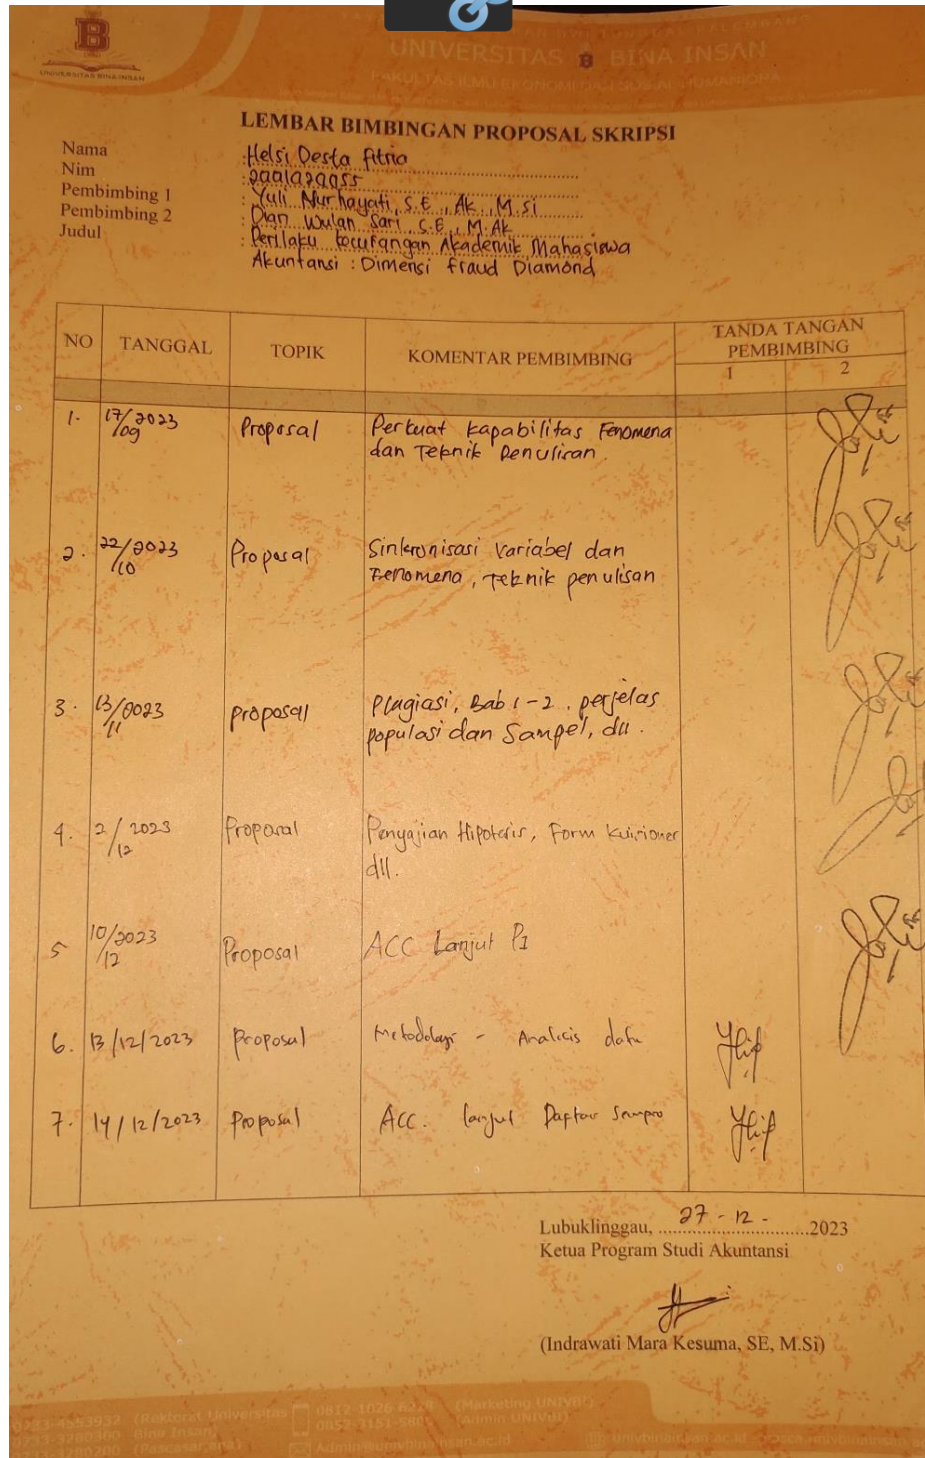 B
UNIVERSITAS BINA INSAN
UNIVERSITAS B BINA INSAN
LEMBAR BIMBINGAN PROPOSAL SKRIPSI
Nama : Helsi Desta Fitria
Nim :
Pembimbing 1 : Yuli Nurhayati, S.E., Ak., M.Si
Pembimbing 2 : Dian Wulan Sari, S.E., M.Ak
Judul : Perilaku kecurangan Akademik Mahasiswa
Akuntansi : Dimensi fraud Diamond
NO TANGGAL TOPIK KOMENTAR PEMBIMBING TANDA TANGAN
PEMBIMBING
1 2
1. 17/09 2023 Proposal Perkuat kapabilitas Fenomena
dan Teknik Penulisan.
2. 22/10 2023 Proposal Sinkronisasi Variabel dan
Fenomena, Teknik penulisan
3. 13/11 2023 proposal Plagiasi, Bab 1-2. perjelas
populasi dan Sampel, dll.
4. 2/12 2023 Proposal Penyajian Hipotesis, Form Kuisioner
dll.
5 10/12 2023 Proposal ACC Lanjut P1
6. 13/12/2023 Proposal Metodologi - Analisis data
7. 14/12/2023 Proposal ACC. lanjut Daftar Sempro
Lubuklinggau, 27 - 12 - 2023
Ketua Program Studi Akuntansi
(Indrawati Mara Kesuma, SE, M.Si)
(Rektorat Universitas
Bina Insan)
(Pascasarjana)
(Marketing UNIVBI)
(Admin UNIVBI)